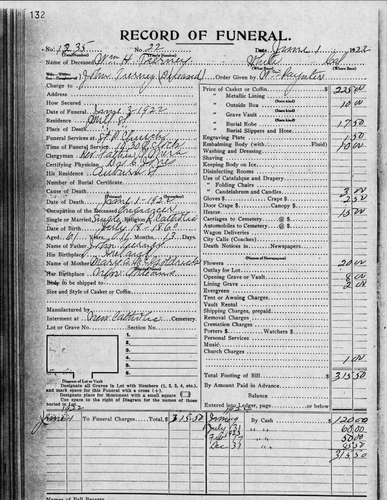 132
RECORD OF FUNERAL.
No. 1235 No. 22 Date June 1 1922
Name of Deceased Wm H. Tierney
John Tierney (Deceased) Order Given by Wm
Charge to
Address
How Secured
Date of Funeral June 3-1922
Residence Mill St.
Place of Death
Funeral Services at St. P. Church
Time of Funeral Service 10:30 O'Clock
Clergyman Rev. Father
Certifying Physician Dr.
His Residence Auburn St
Number of Burial Certificate
Cause of Death
Date of Death June 1-1922
Occupation of the Deceased
Single or Married Single Religion R. Catholic
Date of Birth July 18-1860
Aged 61 Years 10 Months 13 Days
Name of Father John Tierney
His Birthplace Ireland
Name of Mother Mary
Her Birthplace New Orleans
Body to be shipped to
Size and Style of Casket or Coffin
Manufactured by
Interment at New Catholic
Lot or Grave No. Section No.
Diagram of Lot or Vault
Designate all Graves in Lot with Numbers (1, 2, 3, 4, etc.)
and mark space for this Funeral with a cross (+)
Designate place for Monument with a small square
Use space to the right of Diagram for the names of those
buried in Lot.
Price of Casket or Coffin 225.00
" Metallic Lining
" Outside Box 10 00
" Grave Vault
" Burial Robe 17.50
" Burial Slippers and Hose
Engraving Plate 1.50
Embalming Body (with Fluid) 10 00
Washing and Dressing
Shaving
Keeping Body on Ice
Disinfecting Rooms
Use of Catafalque and Drapery
" Folding Chairs
" Candelabrum and Candles 3 00
Gloves $ Crape $ 2.50
Door Crape $ Canopy $
Hearse 15 00
Carriages to Cemetery @ $
Automobiles to Cemetery @ $
Wagon Deliveries
City Calls (Coaches)
Death Notices in Newspapers
Flowers 20 00
Outlay for Lot
Opening Grave or Vault 8 00
Lining Grave 2 00
Evergreen
Tent or Awning Charges
Vault Rental
Shipping Charges, prepaid
Removal Charges
Cremation Charges
Porters $ Watchers $
Personal Services
Music
Church Charges
1 00
Total Footing of Bill $ 315.50
By Amount Paid in Advance
Balance
Entered into Ledger, page or below.
1922
June 1 To Funeral Charges, Total, $ 315.50
By Cash $ 120.00
July 31 " " 60.00
50.00
Dec 31 " "
315.50
Names of Pall Bearers